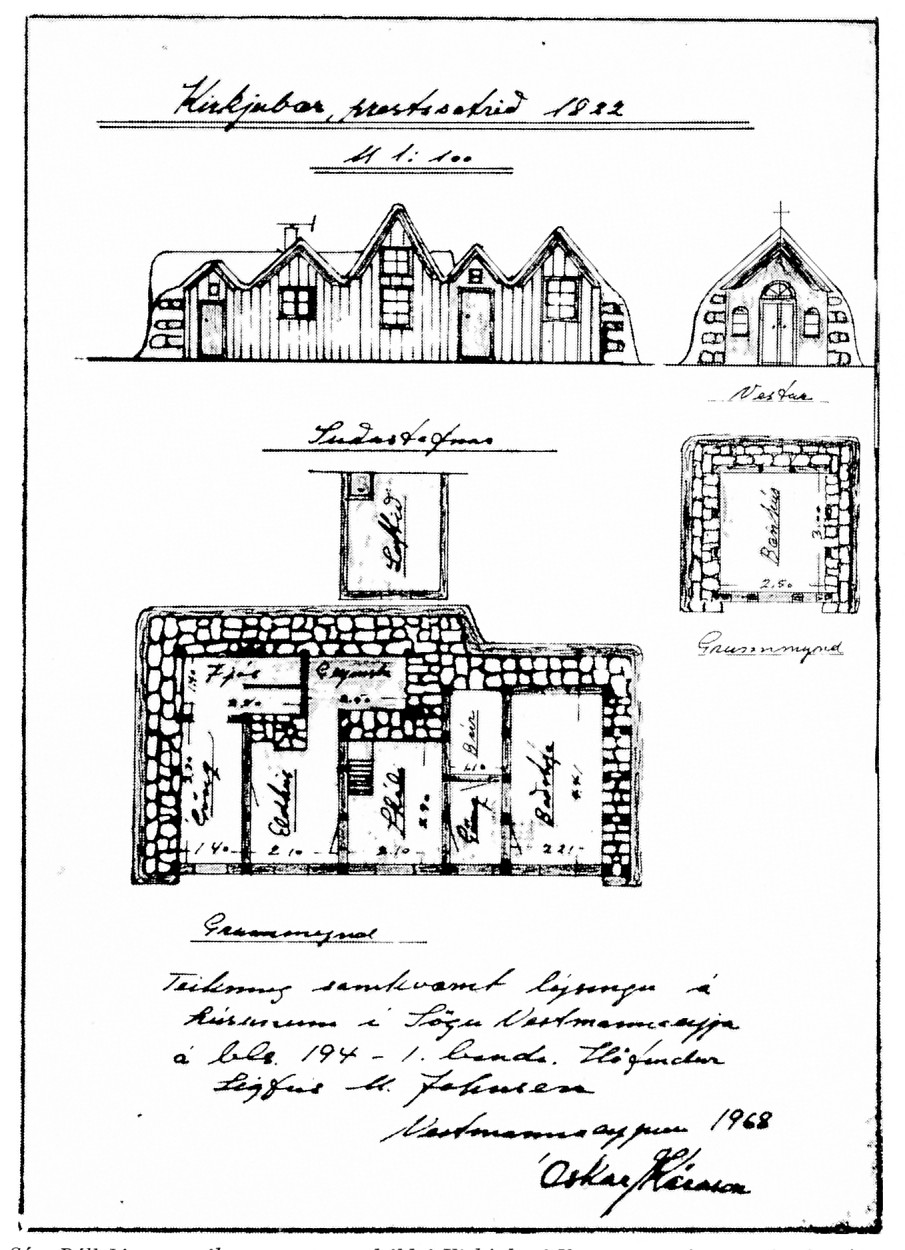 Kirkjubær, prestssetrið 1822
M 1:100
Vestur
Suðurstafnar
Loftið
Bænhús
3.00
2.50
Grunnmynd
Fjós
Geymsla
1.40
2.20
2.50
Göng
Eldhús
Skáli
Búr
1.10
Göng
Baðstofa
2.90
1.40
2.10
2.10
2.21
Grunnmynd
Teikning samkvæmt lýsingu á
húsunum í Sögu Vestmannaeyja
á bls. 194 - 1. bindi. Höfundur
Sigfús M. Johnsen
Vestmannaeyjum 1968
Óskar Kárason